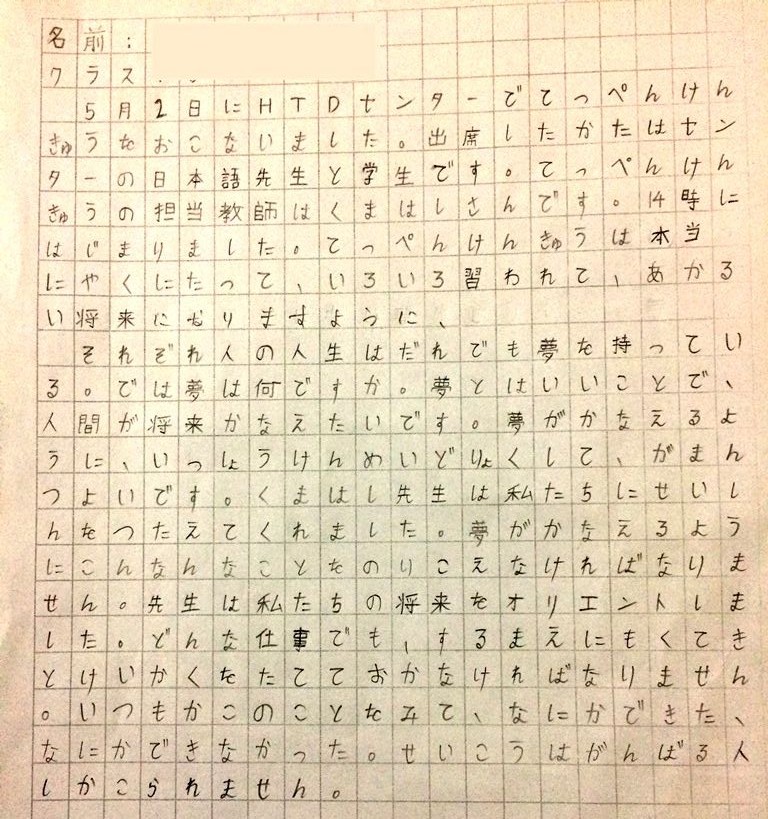 名前：
クラス：
5月2日にHTDセンターでてっぺんけん
きゅうをおこないました。出席したかたはセン
ターの日本語先生と学生です。てっぺんけん
きゅうの担当教師はくまはしさんです。14時に
はじまりました。てっぺんけんきゅうは本当
にやくにたって、いろいろ習われて、あかる
い将来になりますように、
それぞれ人の人生はだれでも夢を持ってい
る。では夢は何ですか。夢とはいいことで、
人間が将来かなえたいです。夢がかなえるよ
うに、いっしょうけんめいどりょくして、がまん
つよいです。くまはし先生は私たちにせいし
んをつたえてくれました。夢がかなえるよう
にこんなんなことをのりこえなければなりま
せん。先生は私たちの将来をオリエントしま
した。どんな仕事でも、するまえにもくてき
とけいかくをたてておかなければなりません
。いつもかこのことをみて、なにかできた、
なにかできなかった。せいこうはがんばる人
しかこられません。